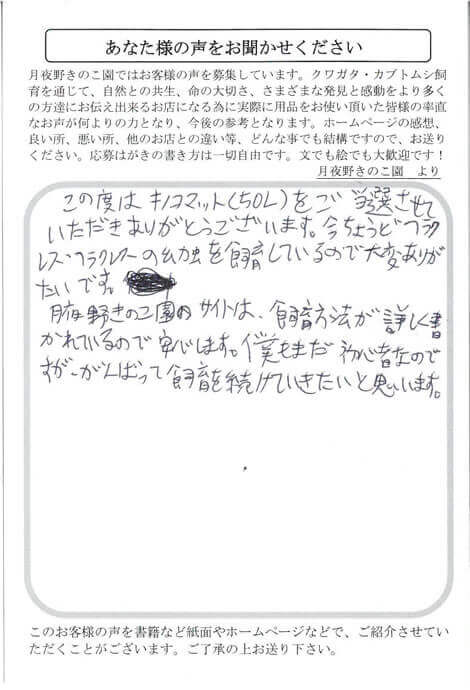 あなた様の声をお聞かせください
月夜野きのこ園ではお客様の声を募集しています。クワガタ・カブトムシ飼
育を通じて、自然との共生、命の大切さ、さまざまな発見と感動をより多く
の方達にお伝え出来るお店になる為に実際に用品をお使い頂いた皆様の率直
なお声が何よりの力となり、今後の参考となります。ホームページの感想、
良い所、悪い所、他のお店との違い等、どんな事でも結構ですので、お送り
ください。応募はがきの書き方は一切自由です。文でも絵でも大歓迎です！
月夜野きのこ園　より
この度はキノコマット(50L)をご当選させて
いただきありがとうございます。今ちょうどヘラクレ
レス・ヘラクレスの幼虫を飼育しているので大変ありが
たいです。
月夜野きのこ園のサイトは、飼育方法が詳しく書
かれているので安心します。僕もまだ初心者なので
すが、がんばって飼育を続けていきたいと思います。
このお客様の声を書籍など紙面やホームページなどで、ご紹介させてい
ただくことがございます。ご了承の上お送り下さい。